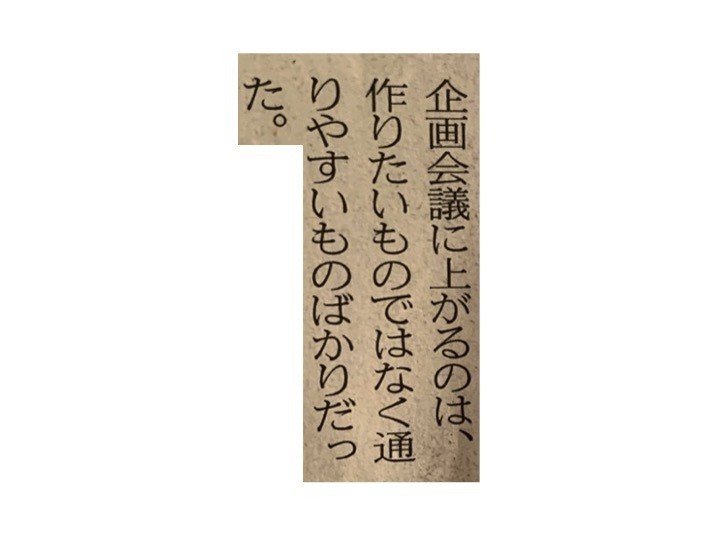 企画会議に上がるのは、
作りたいものではなく通
りやすいものばかりだっ
た。